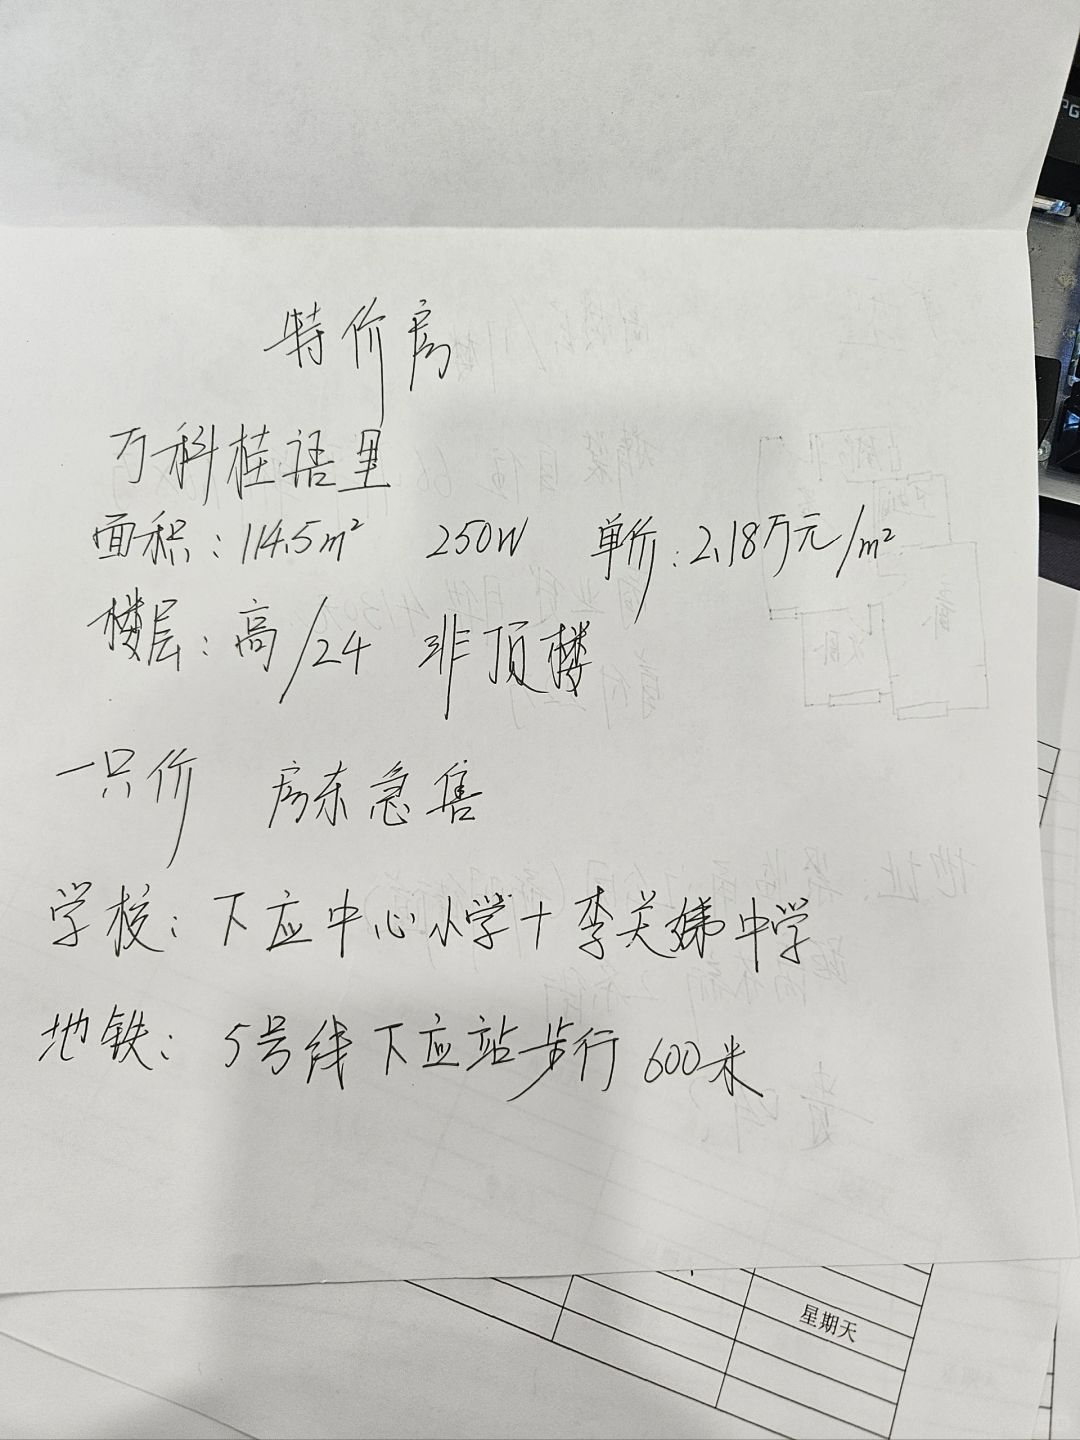 特价房
万科桂语里
面积:114.5m² 250W 单价:2.18万元/m²
楼层:高/24 非顶楼
一只价 房东急售
学校:下应中心小学+李关娣中学
地铁:5号线下应站步行600米
星期天